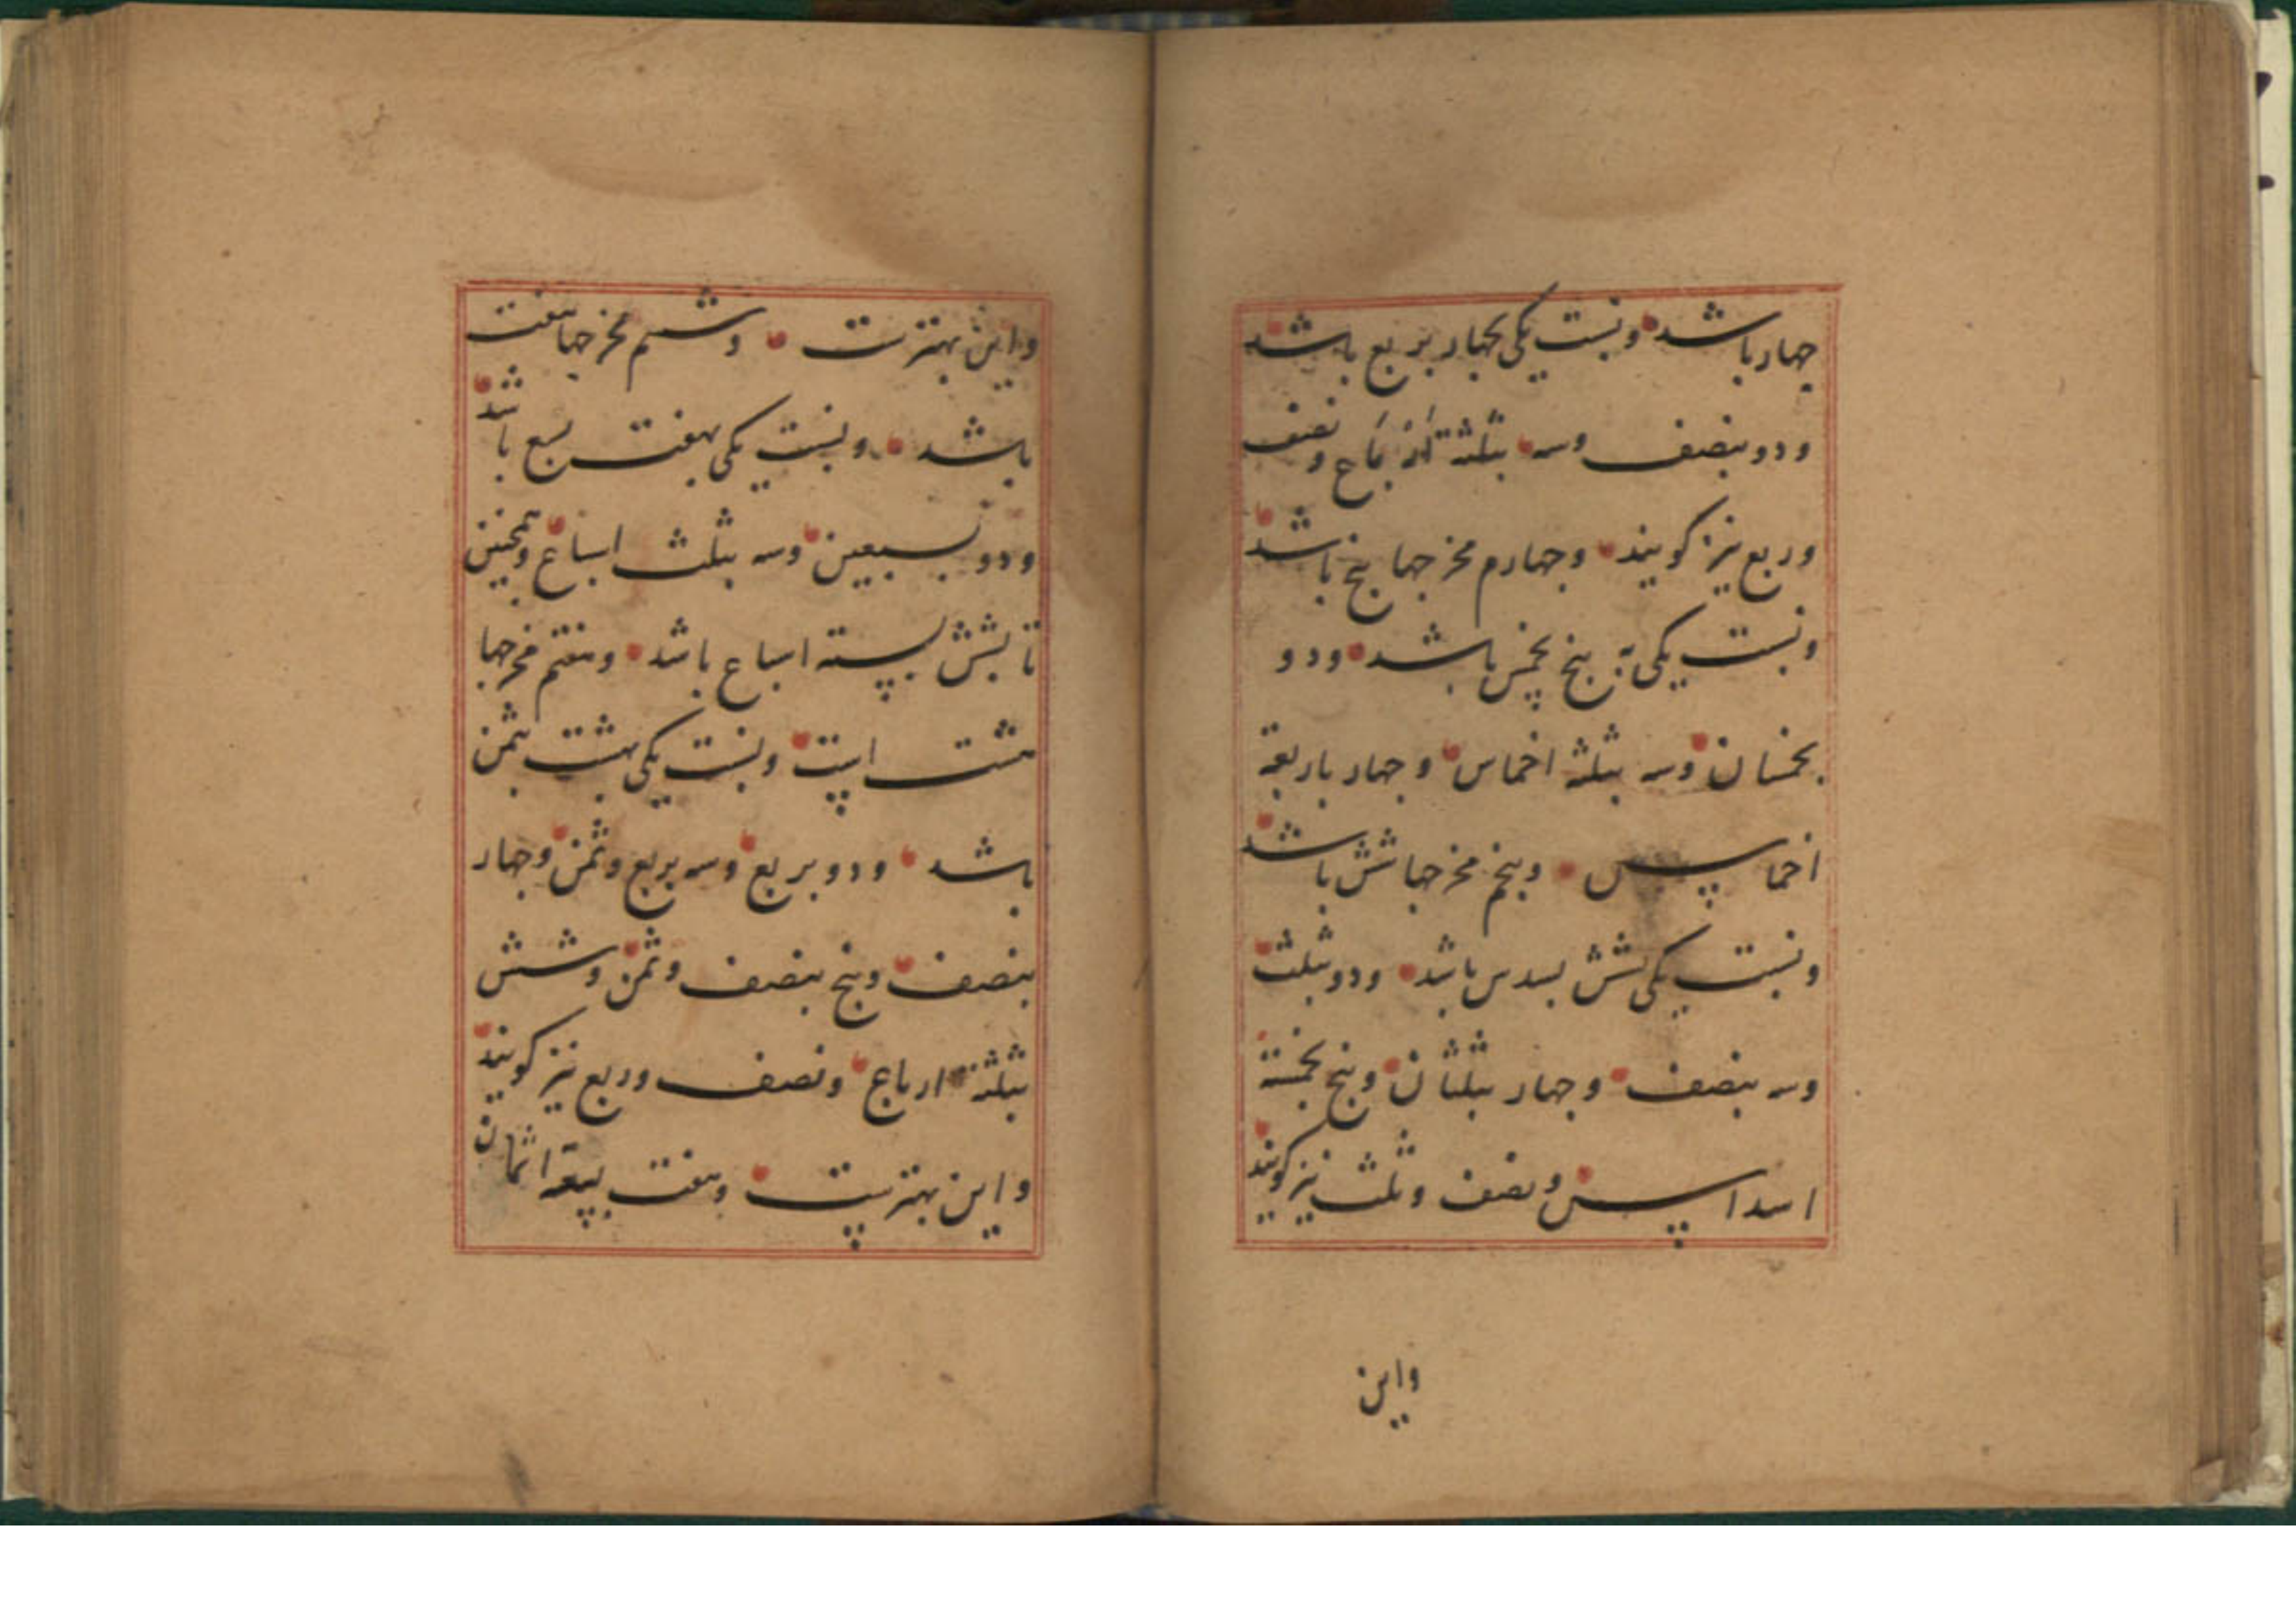 چهار باشد ونسبت یکی بچهار بربع باشد
ودو بنصف وسه بثلثة ارباع ونصف
وربع نیز کویند وچهارم مخرجها پنج باشد
ونسبت یکی به پنج بخمس باشد ودو
بخمسان وسه بثلثه اخماس وچهار باربعة
اخماس وپنجم مخرجها شش باشد
ونسبت یکی بشش بسدس باشد ودو بثلث
وسه بنصف وچهار بثلثان وپنج بخمسة
اسداس ونصف وثلث نیز کویند
واین
واین بهترست وششم مخرجها هفت
باشد ونسبت یکی بهفت بسبع باشد
ودو بسبعین وسه بثلث اسباع وهمچنین
تا بشش بسته اسباع باشد وهفتم مخرجها
هشت است ونسبت یکی بهشت بثمن
باشد ودو بربع وسه بربع وثمن وچهار
بنصف وپنج بنصف وثمن وشش
بثلثة ارباع ونصف وربع نیز کویند
واین بهترست وهفت بسبعة اثمان